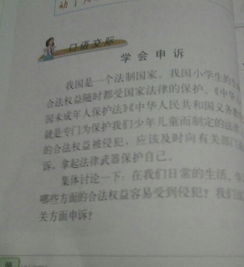 口语交际
学会申诉
我国是一个法制国家，我国小学生的
合法权益随时都受国家法律的保护。《中华
国未成年人保护法》《中华人民共和国义务教
就是专门为保护我们少年儿童而制定的法律
的合法权益被侵犯，应该及时向有关部门
诉，拿起法律武器保护自己。
集体讨论一下：在我们日常的生活、
哪些方面的合法权益容易受到侵犯？我们
关方面申诉？